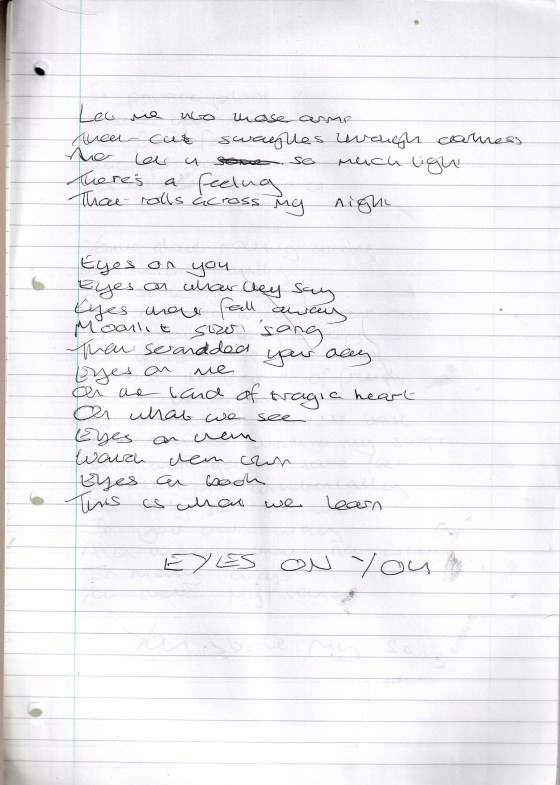 Let me into those arms
That cut swathes through darkness
That let in so much light
There's a feeling
That rolls across my night
Eyes on you
Eyes on what they say
Eyes that fall away
Moonlit song
That your day
Eyes on me
On the land of tragic heart
On what we see
Eyes on them
Watch them turn
Eyes on both
This is what we learn
EYES ON YOU